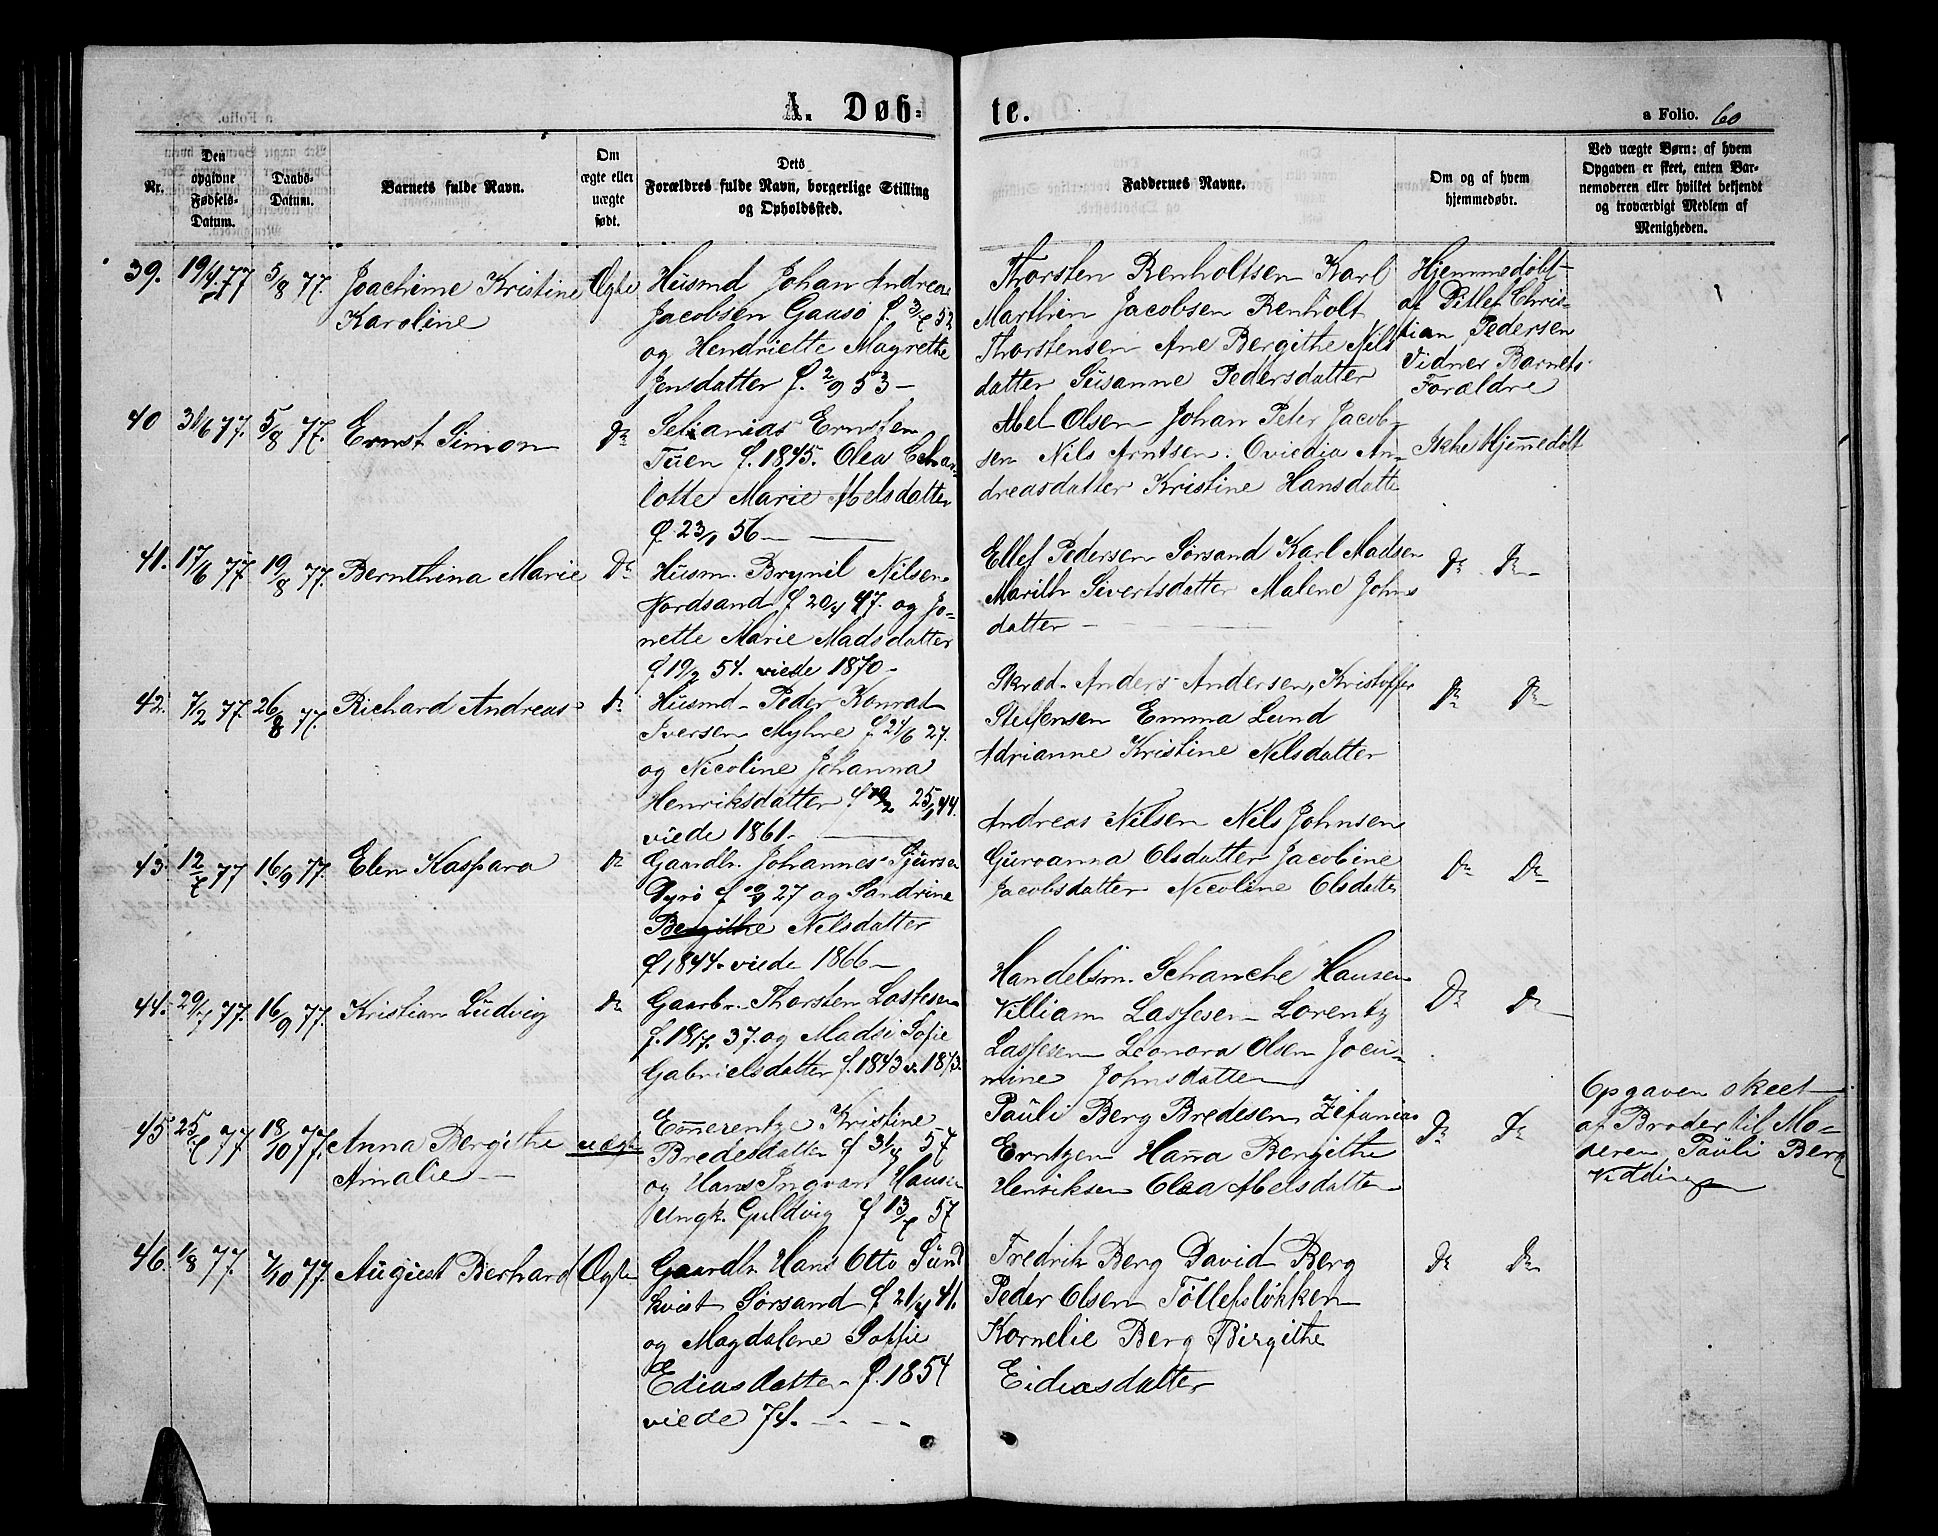 A. Døb-
te.
a Folio. 60
Nr.
Den
opgivne
Fødsels-
Datum.
Daabs-
Datum.
Barnets fulde Navn.
Om
ægte eller
uægte
født.
Dets
Forældres fulde Navn, borgerlige Stilling
og Opholdssted.
Faddernes Navne.
Om og af hvem
hjemmedøbt.
Ved uægte Børn: af hvem
Opgaven er skeet, enten Bar-
nemoderen eller hvilket bekjendt
og troværdigt Medlem af
Menigheden.
39.
19/4.77
5/8 77.
Joachime Kristine
Karoline
Ægte
Husmd Johan Andreas
Jacobsen Gausø f.
og Hendriette Magrethe
Jensdatter f. 2/9 53 -
Thorsten Renholtsen Karl
Marthin Jacobsen Renholt
Thorstensen Ane Bergithe Nils
datter Susanne Pedersdatter
Hjemmedøbt
af Ditlef Chris-
tian Pedersen
Vidner Barnets
Forældre
40
77.
5/8 77.
Ernst Simon
Do
Ernsten
f. 1845. Olea Char-
lotte Marie Abelsdatter
56 -
Abel Olsen Johan Peter Jacob-
sen Nils Arntsen. Oviedia An-
dreasdatter Kristine Hansdatte
Ikke Hjemedøbt
41.
17/6 77.
19/8 77.
Bernthina Marie
Do
Husm. Brynil Nilsen
Nordsand f 20/4 47. og Jo-
nette Marie Madsdatter
f 19/2 54. viede 1870 -
Ellef Pedersen Sørsand Karl Madsen
Marith Sivertsdatter Malene Johns
datter -
Do Do -
42.
7/2 77.
26/8 77.
Richard Andreas
Do
Husmd - Peder Konrad
Iversen Myhre f 21/6 27.
og Nicoline Johanna
Henriksdatter f 25/1 44.
viede 1861 -
Skræd. Anders Andersen, Kristoffer
Steffensen Emma Lund
Adrianne Kristine Nilsdatter
Do Do -
43.
12/7 77
16/9 77.
Elen Kaspara
Do
Gaardbr. Johannes Sjursen
Dyrø f 27 og Sandrine
Bergithe Nilsdatter
f 1844. viede 1866 -
Andreas Nilsen Nils Johnsen
Guroanna Olsdatter Jacobine
Jacobsdatter Nicoline Olsdatter
Do Do -
44.
29/7 77.
16/9 77.
Kristian Ludvig
Do
Gaarbr. Thorsten Lassesen
37. og Madsi Sofie
Gabrielsdatter f. 1843 v. 1873.
Handelsm. Schanche Hansen
Villiam Lassesen Lorentz
Lassesen Leonora Olsen Jocu-
mine Johnsdatter
Do Do -
45.
25/7 77
18/10 77.
Anna Bergithe
Amalie -
uægte
Emerentze Kristine
Bredesdatter f 57
og Hans Ingvart Hansen
Ungk. Guldvig f 13/7 57
Pauli Berg Bredesen Zefanias
Erntzen Hana Bergithe
Henriksen Olea Abelsdatter
Do Do
Opgaven skeet
af Broder til Mo-
deren Pauli Berg
Vidding
46.
1/8 77.
7/10 77.
August Berhard
Ægte
Gaardbr. Hans Otto Sund
kvist Sørsand f 21/4 41.
og Magdalene Soffie
Ediasdatter f. 1854
viede 74. - - -
Fredrik Berg David Berg
Peder Olsen Tøllefsløkken
Kornelie Berg Birgithe
Eidiasdatter
Do Do